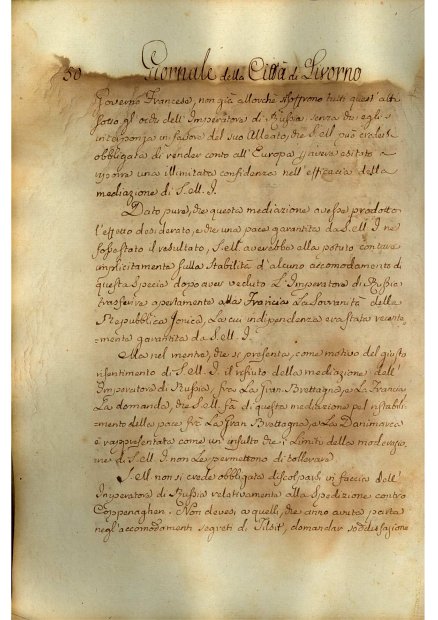 50 Giornale della Città di Livorno
Governo Francese, non già allorché s'offrono tutti quest'atti
sotto gl'occhi dell'Imperatore di Russia senza che egli s'
interponga in favore del suo Alleato, che S. M. può credersi
obbligata di render conto all'Europa, d'avere esitato a
riporre una illimitata confidenza nell'efficacia della
mediazione di S. M. I.
Dato pure, che questa mediazione avesse prodotto
l'effetto desiderato, e che una pace garantita da S. M. I. ne
fosse stato il resultato, S. M. averebbe ella potuto contare
implicitamente sulla stabilità d'alcuno accomodamento di
questa specie dopo aver veduto L'Imperatore di Russia
trasferire apertamente alla Francia La Sovranità della
Repubblica Jonica, La cui indipendenza era stata recente-
mente garantita da S. M. I.
Ma nel mentre, che si presenta, come motivo del giusto
risentimento di S. M. I. il rifiuto della mediazione dell'
Imperatore di Russia, fra La Gran Brettagna, e La Francia
La domanda, che S. M. fa di questa meditazione pel ristabili-
mento della pace fra La Gran Brettagna, e La Danimarca
è rappresentata come un'insulto che i Limiti della moderazio-
ne di S. M. I. non Le permettono di tollerare
S. M. non si crede obbligata discolparsi in faccia dell'
Imperatore di Russia relativamente alla Spedizione contro
Coppenaghen. Non devesi a quelli, che anno avuta parte
negl'accomodamenti segreti di Tilsit, domandar soddisfazione